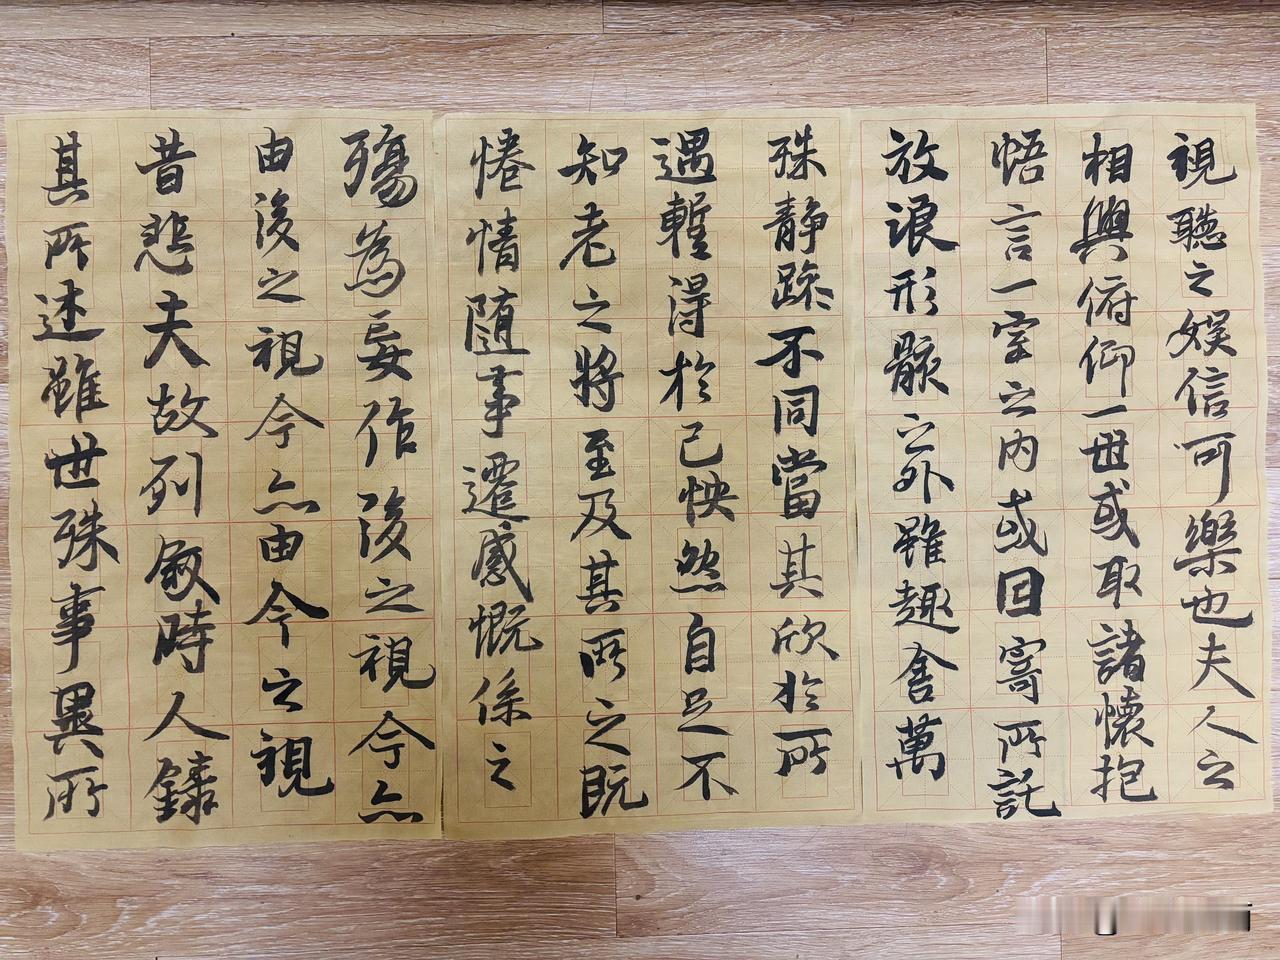 視聽之娛信可樂也夫人之
相與俯仰一世或取諸懷抱
悟言一室之内或因寄所託
放浪形骸之外雖趣舍萬
殊静躁不同當其欣於所
遇暫得於己怏然自足不
知老之將至及其所之既
惓情隨事遷感慨係之
殤為妄作後之視今亦
由後之視今亦由今之視
昔悲夫故列叙時人録
其所述雖世殊事異所